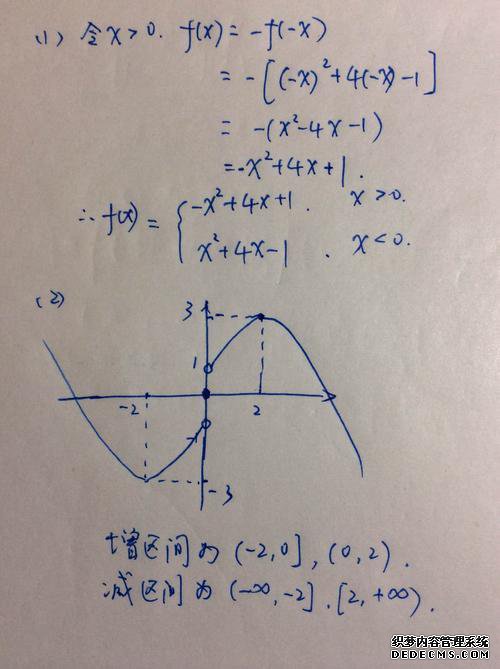 (1) 令x>0. f(x) = -f(-x)
= -[(-x)²+4(-x)-1]
= -(x²-4x-1)
=-x²+4x+1.
∴f(x) = { -x²+4x+1. x>0.
x²+4x-1. x<0.
(2)
3
1
-2 2
-1
-3
增区间为 (-2,0], (0,2).
减区间为 (-∞,-2]. [2,+∞).
织梦内容管理系统
DEDECMS.COM